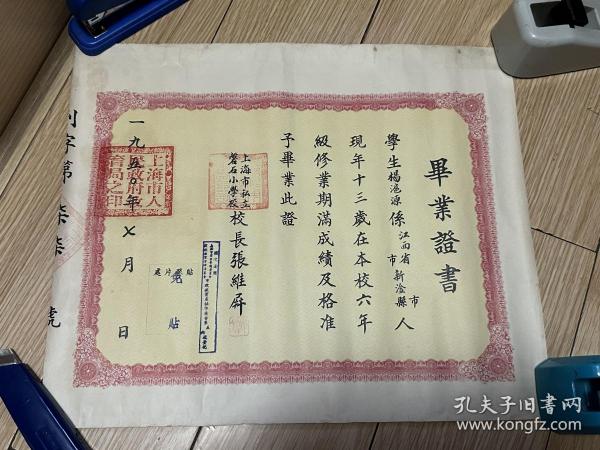 畢業證書
學生楊滬源係江西省新淦縣市人
現年十三歲在本校六年
級修業期滿成績及格准
予畢業此證
上海市私立
磐石小學校
校長張維屏
上海市人
民政府教
育局之印
一九五〇年七月 日
免
貼
字第柒柒號
孔夫子旧书网
www.kongfz.com